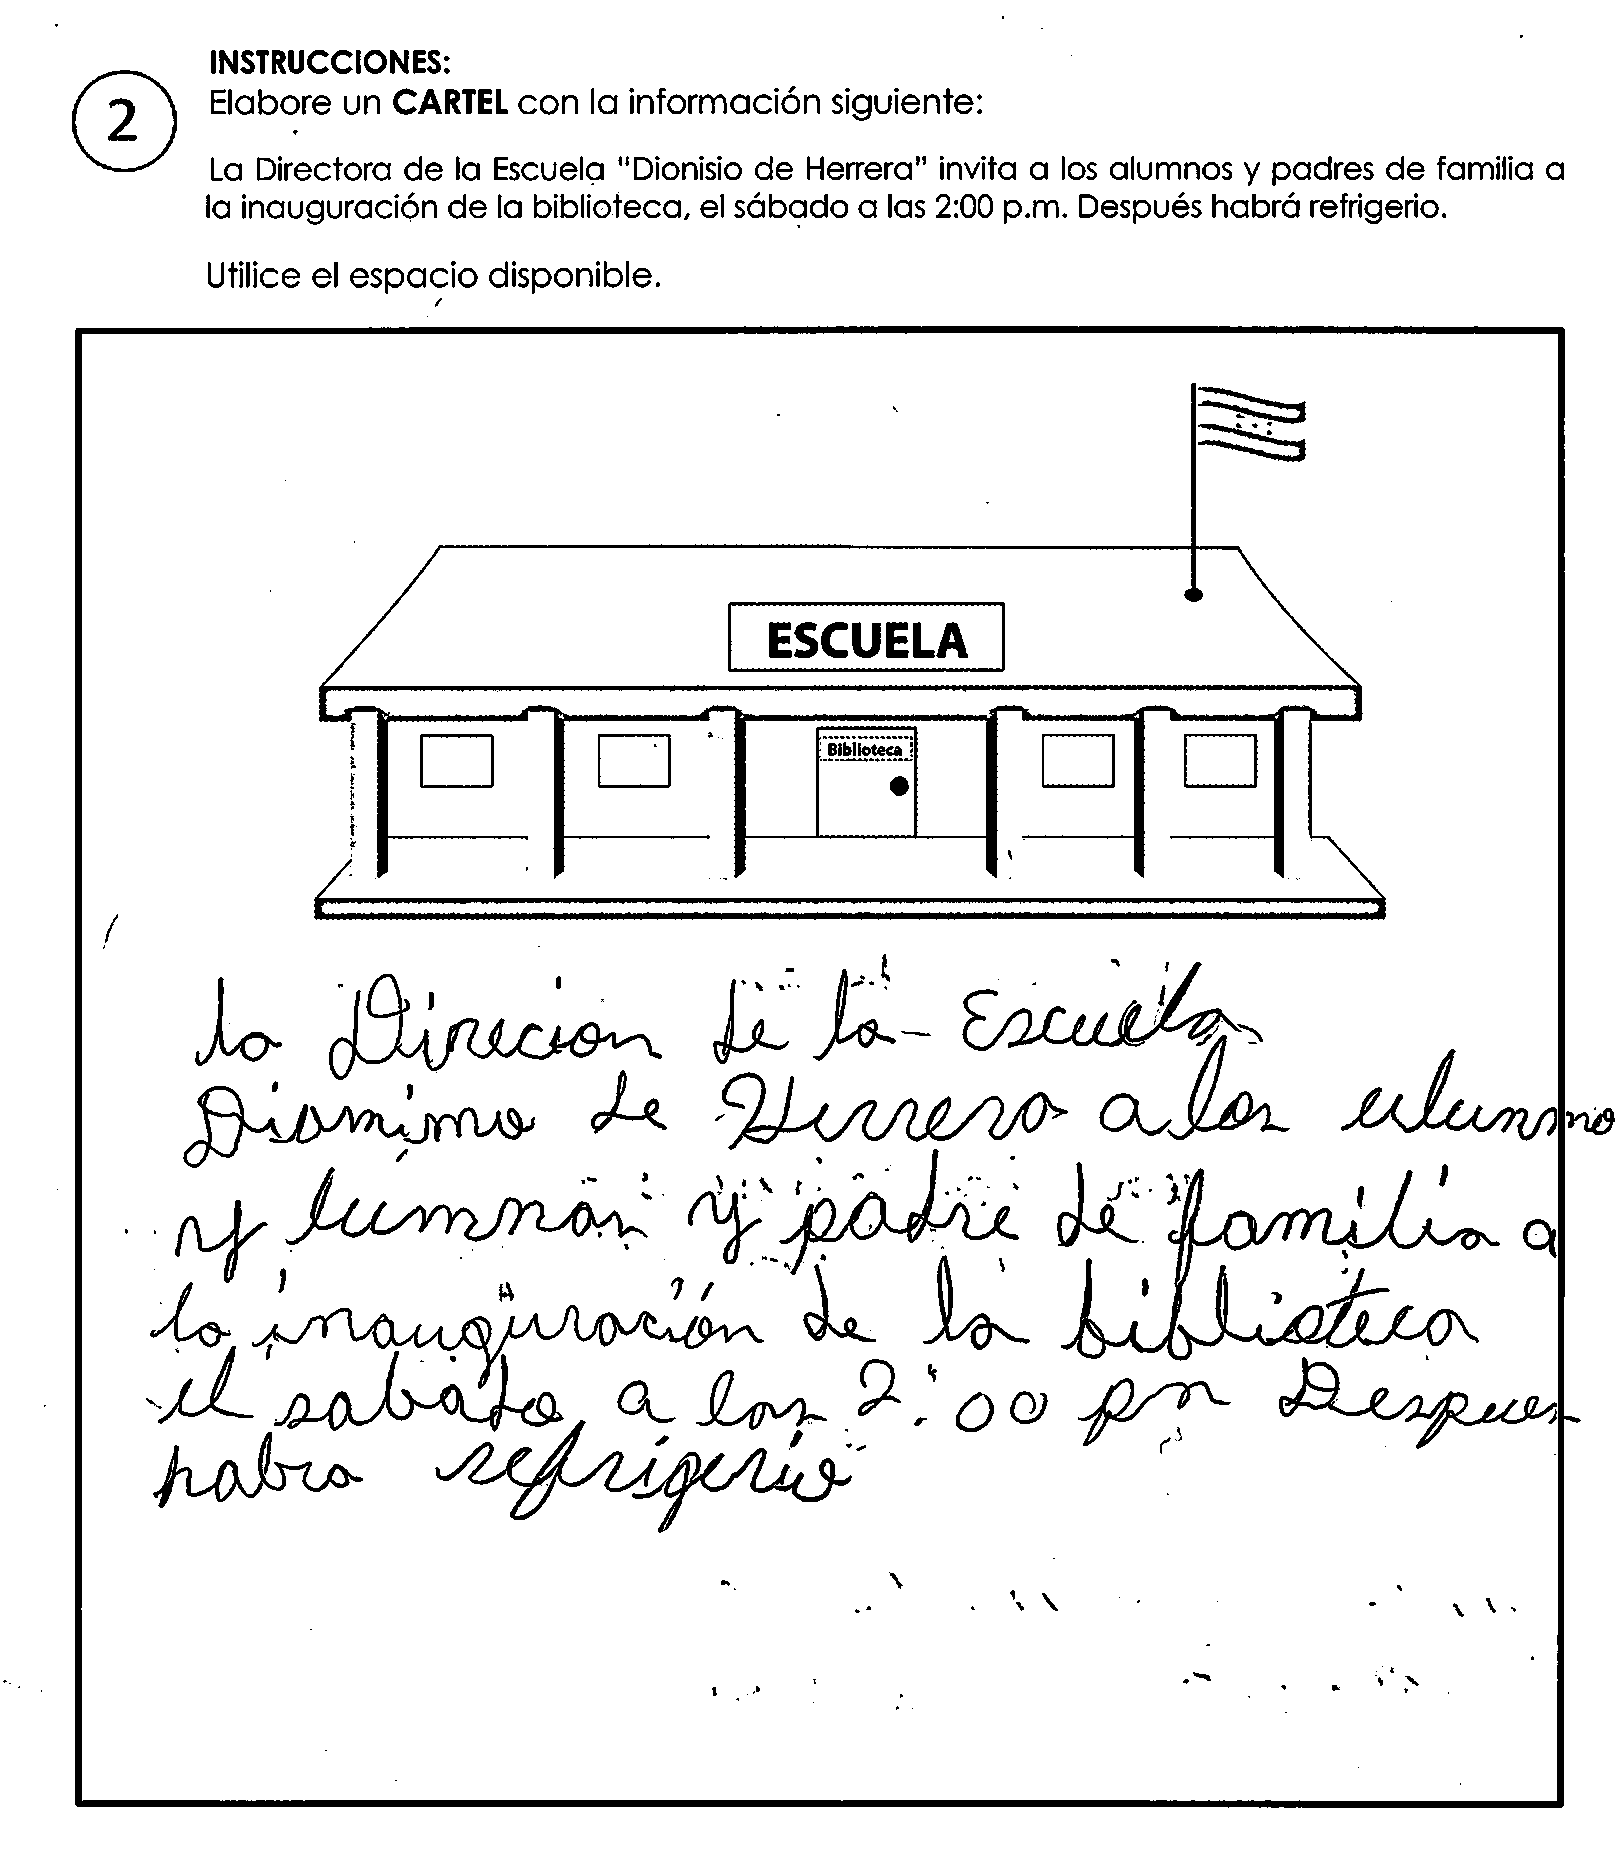 2
INSTRUCCIONES:
Elabore un CARTEL con la información siguiente:
La Directora de la Escuela "Dionisio de Herrera" invita a los alumnos y padres de familia a
la inauguración de la biblioteca, el sábado a las 2:00 p.m. Después habrá refrigerio.
Utilice el espacio disponible.
ESCUELA
Biblioteca
la Direcion de la Escuela
de Herrera a los
y y padre de familia a
la inauguración de la biblioteca
el sabado a las 2:00 pm Despues
habra refrigerio